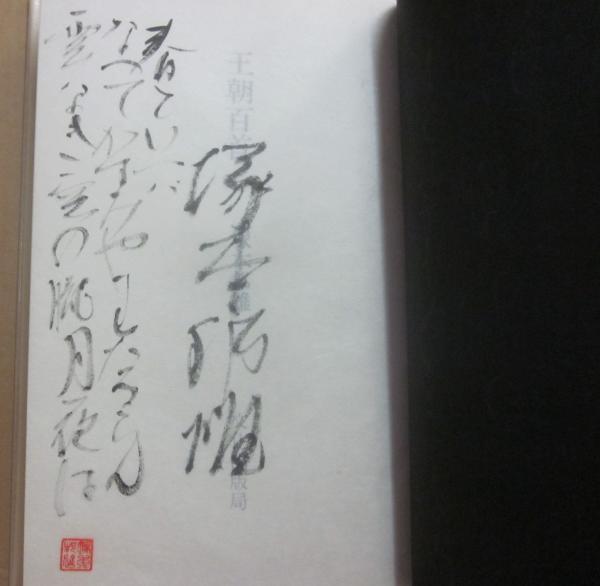 王朝百首
塚本邦雄
春といへば
なべてかすみやわたるらん
雲なき空の朧月夜は
版局